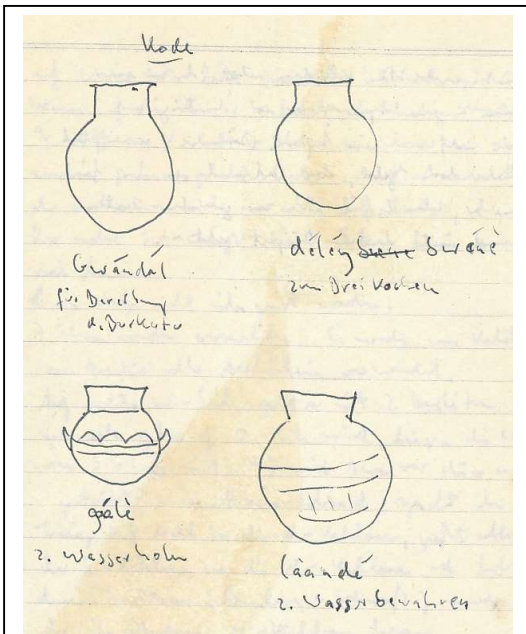 Kode
Gwándál
für Bereitung
d. Burkutu
déley buréné
zum Brei kochen
gálè
z. Wasserholen
láandé
z. Wasserbewahren